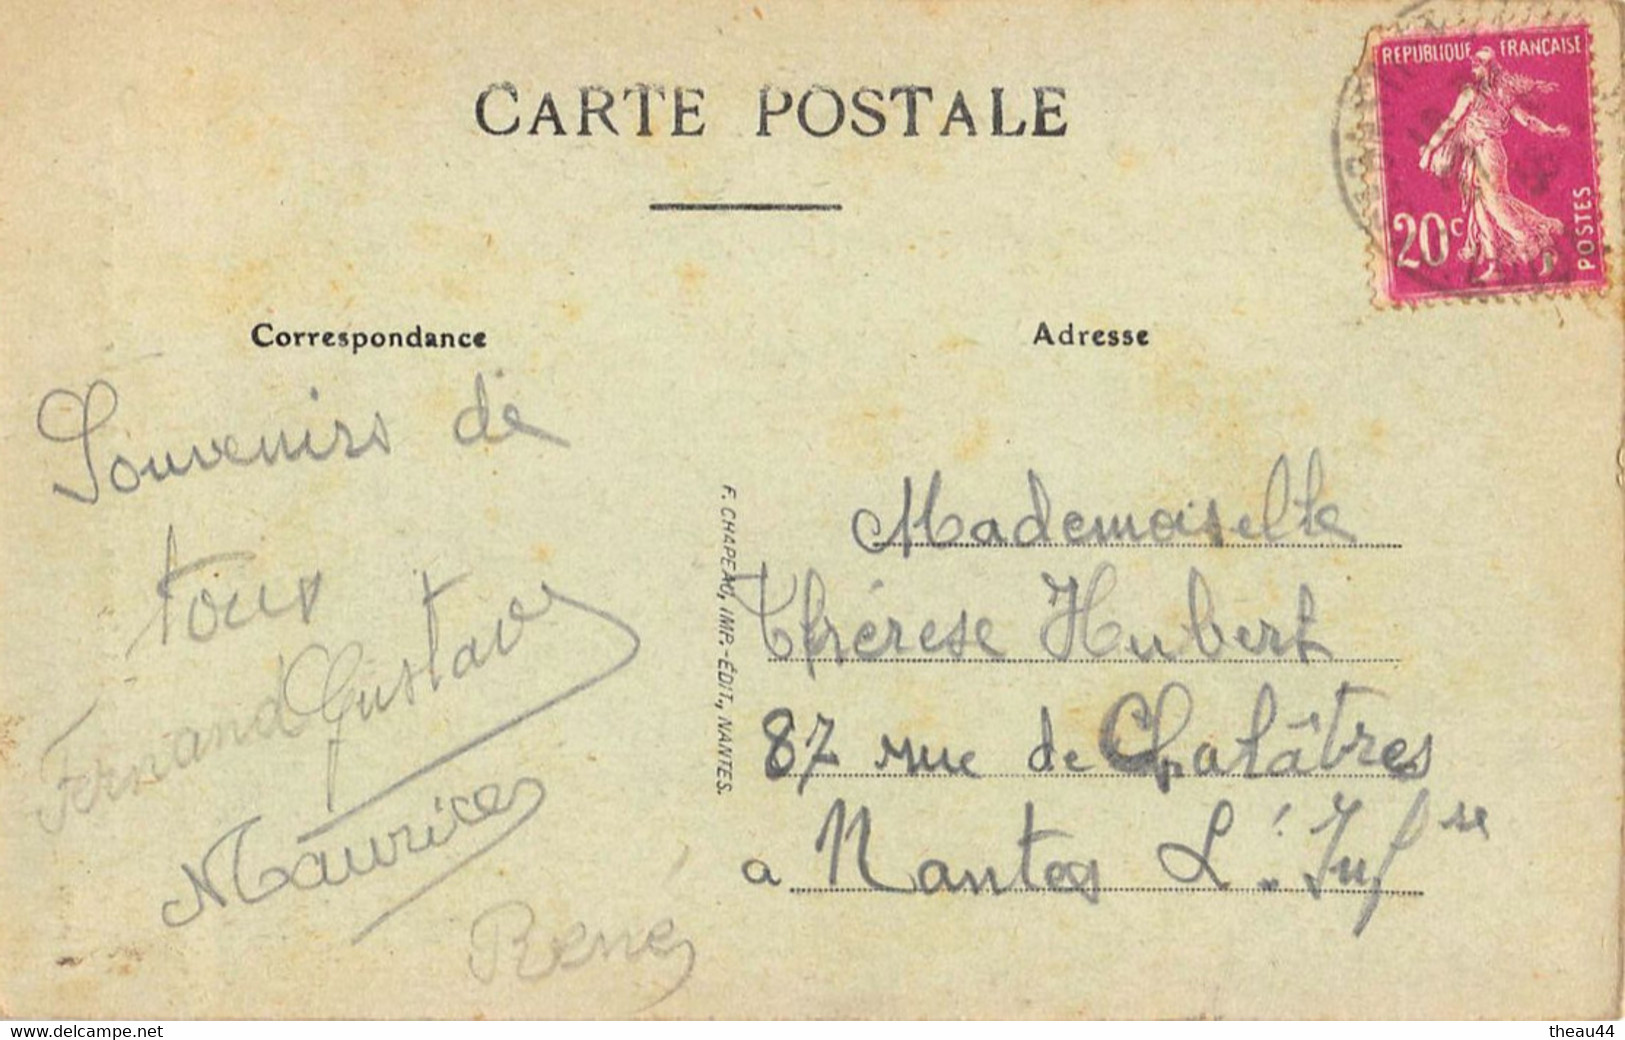 CARTE POSTALE
REPUBLIQUE FRANÇAISE
20c
POSTES
Correspondance
Adresse
Souvenirs de
tous
Fernand Gustave
Maurice
René
F. CHAPEAU, IMP.-ÉDIT., NANTES.
Mademoiselle
Thérese Hubert
87 rue de Chalâtres
a Nantes L. Infse
www.delcampe.net
theau44